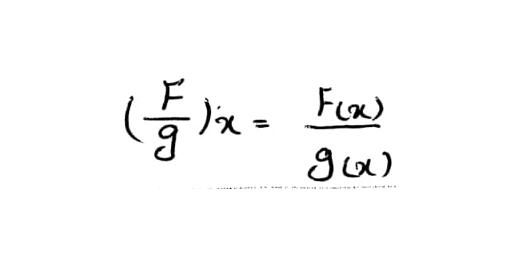 (F/g)x = F(x)/g(x)